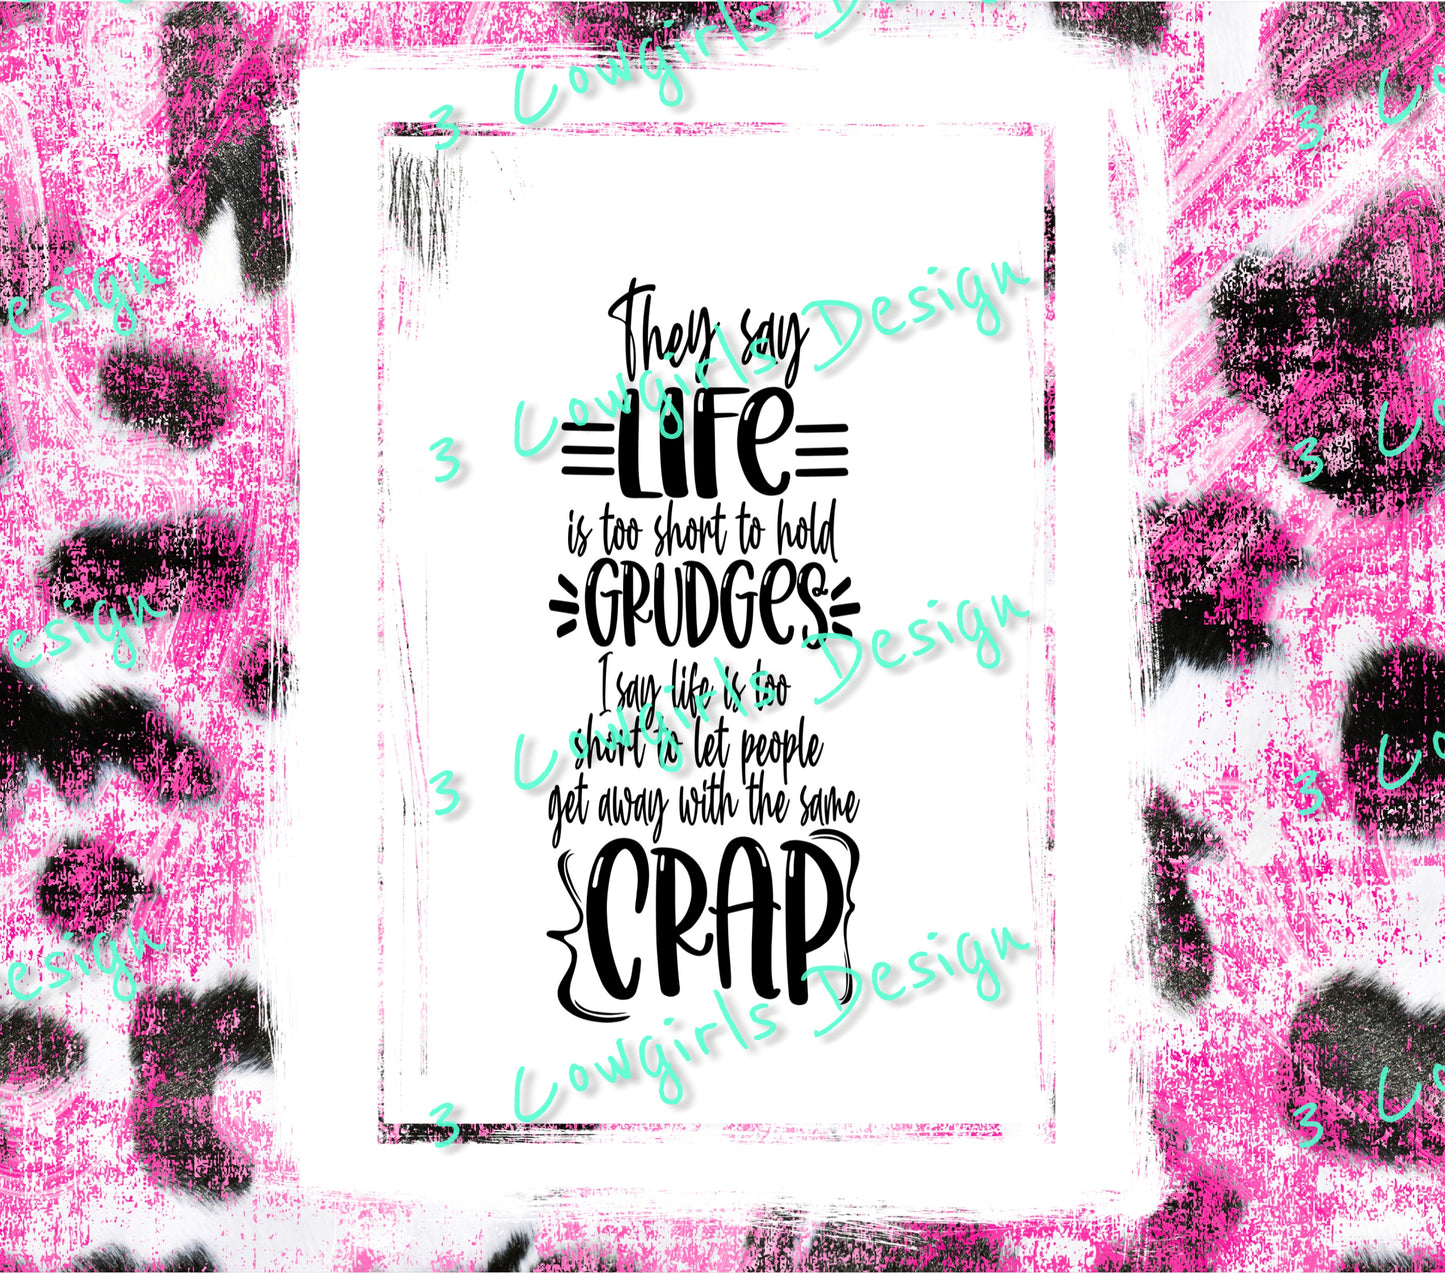 3 Cowgirls Design
They say
LIFe
is too short to hold
GRUDGes
I say life is too
short to let people
get away with the same
CRAP
3 Cowgirls Design
3 Cowgirls Design
3 Cowgirls Design
esign
esign
esign
3 Co
3 Co
3 Co
3 Co